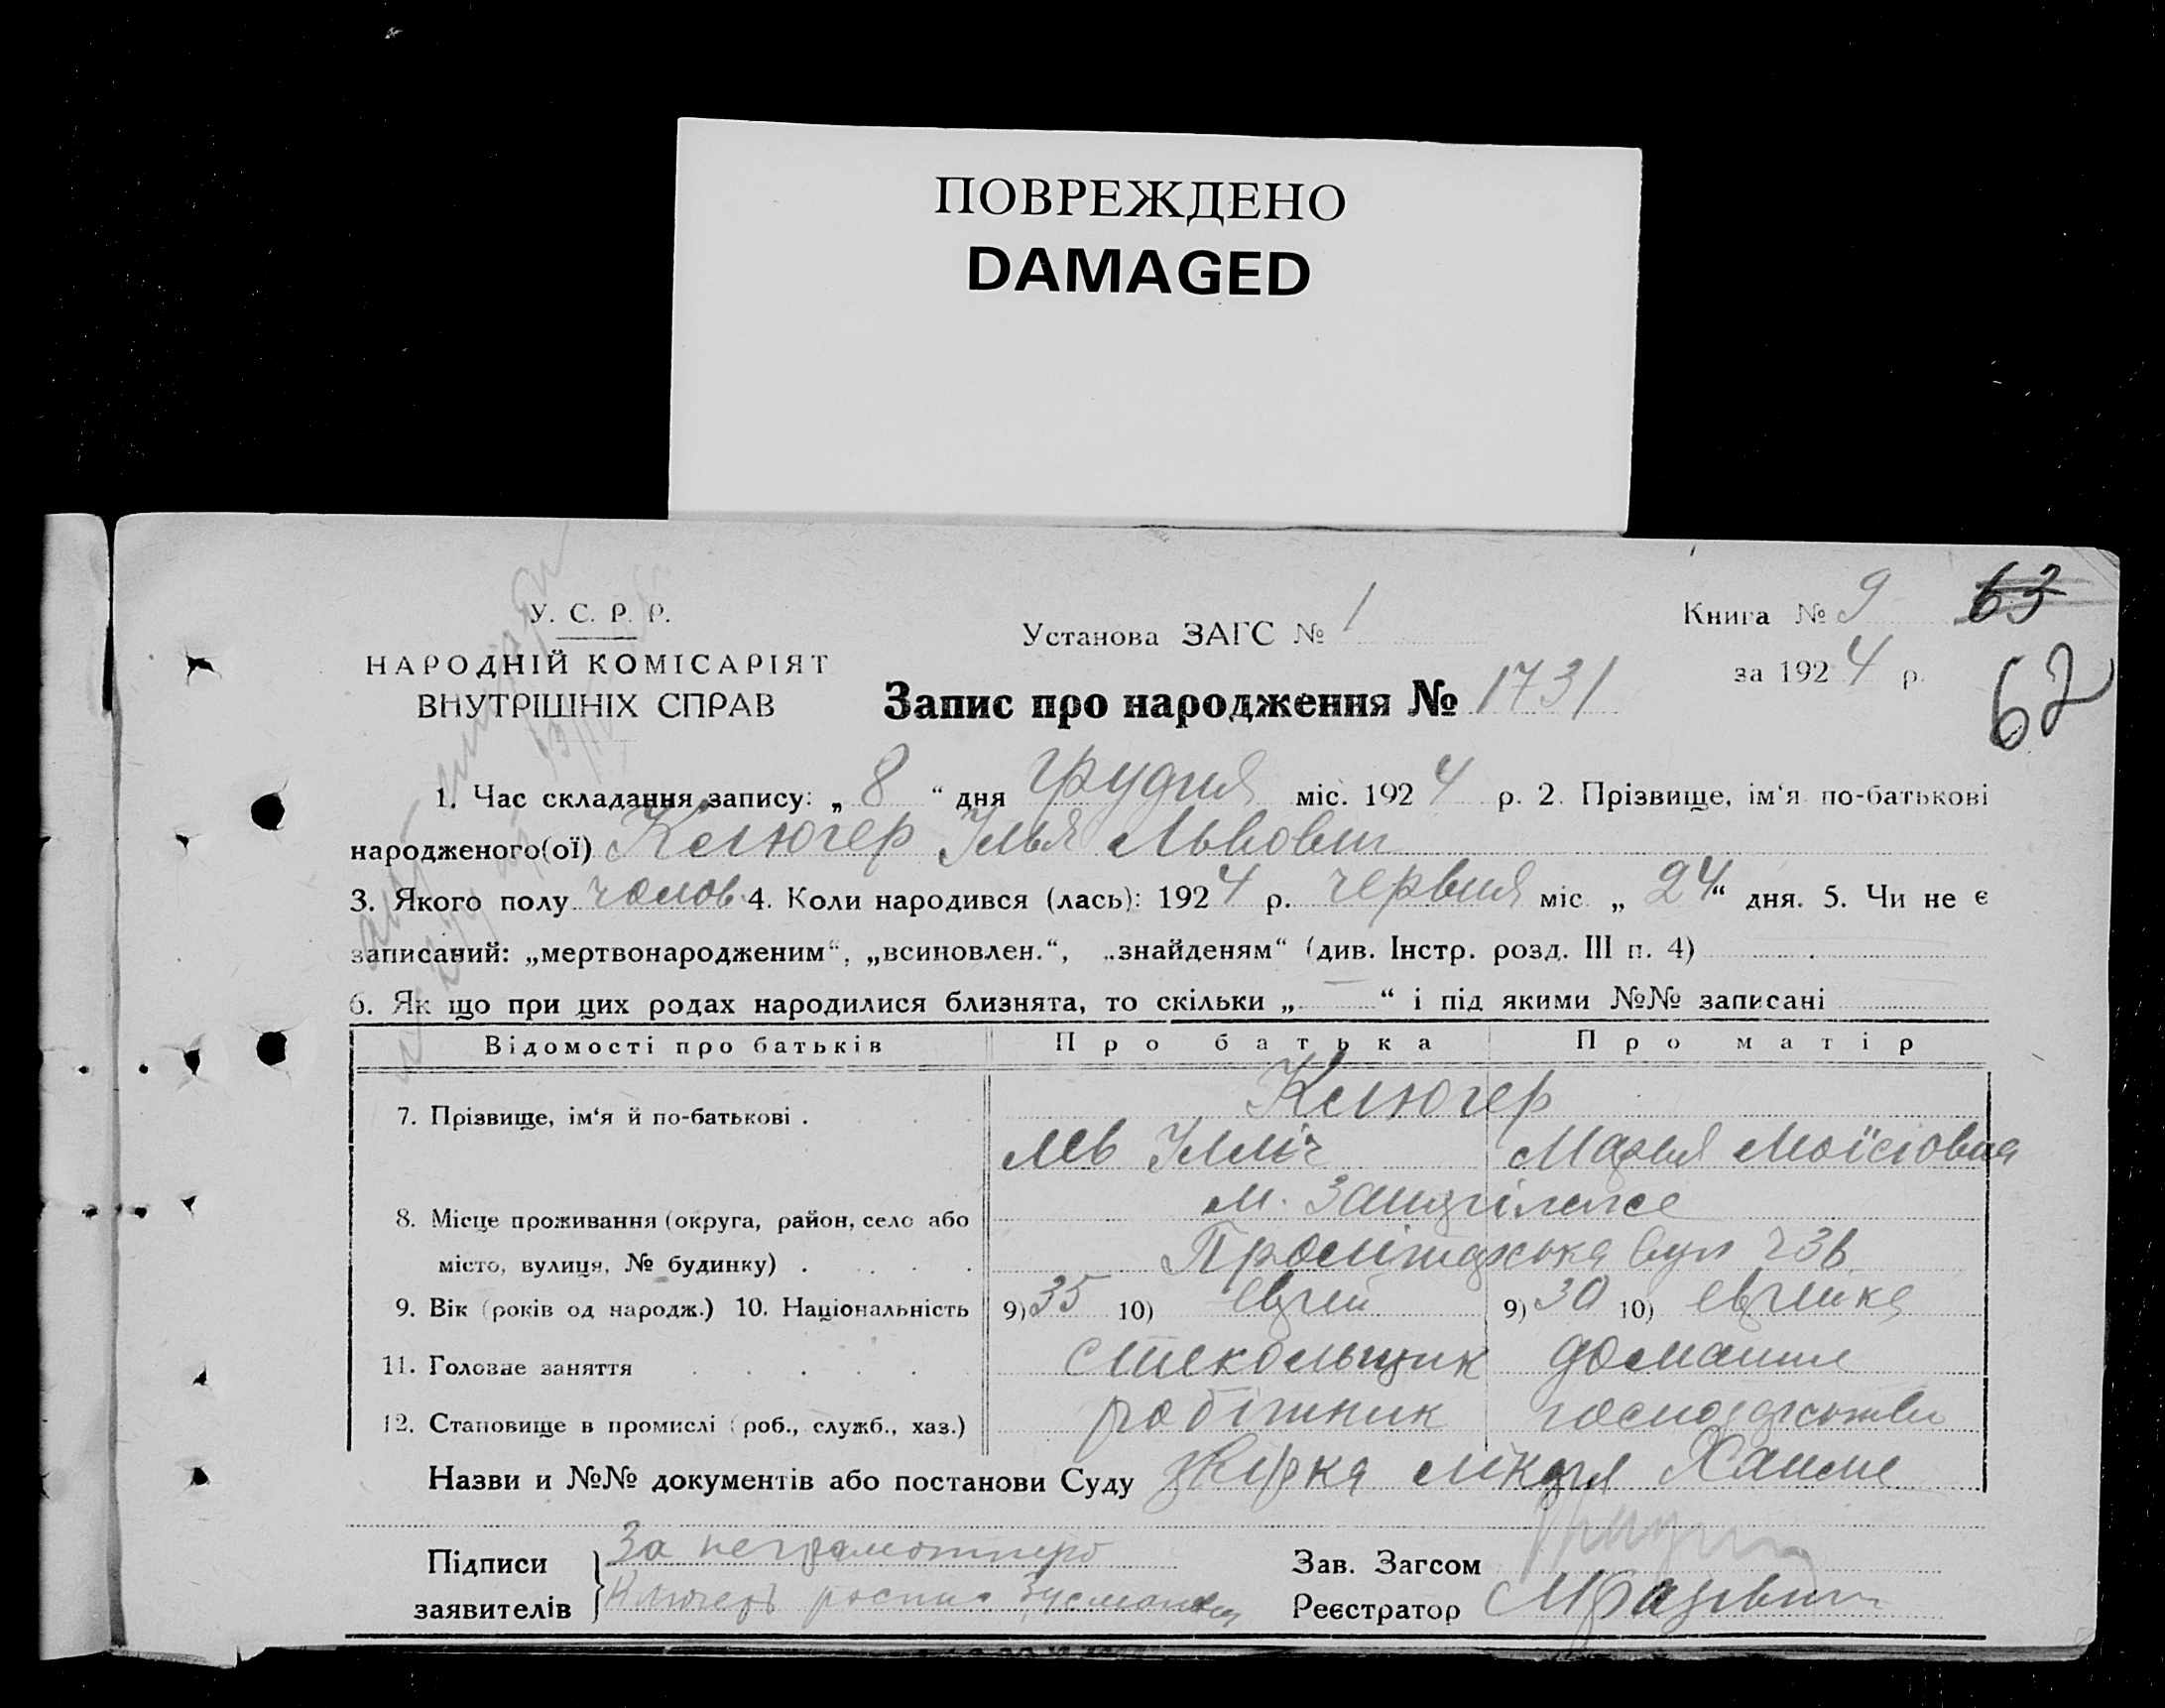 ПОВРЕЖДЕНО
DAMAGED
У. С. Р. Р.
НАРОДНІЙ КОМІСАРІЯТ
ВНУТРІШНІХ СПРАВ
Установа ЗАГС № 1
Запис про народження № 1731
Книга № 9
63
за 1924 р.
62
1. Час складання запису: „ 8 “ дня грудня міс. 1924 р. 2. Прізвище, ім‘я по-батькові
народженого(ої) Клюгер Ілья Львович
3. Якого полу чолов. 4. Коли народився (лась): 1924 р. червня міс. „ 24 “ дня. 5. Чи не є
записаний: „мертвонародженим“, „всиновлен.“, „знайденям“ (див. Інстр. розд. III п. 4)
6. Як що при цих родах народилися близнята, то скільки „ — “ і під якими №№ записані
Відомості про батьків Про батька Про матір
7. Прізвище, ім‘я й по-батькові . Клюгер
Лев Ілліч Марья Моїсіовна
8. Місце проживання (округа, район, село або
місто, вулиця, № будинку) . вул 23в
9. Вік (років од народж.) 10. Національність 9) 35 10) еврей 9) 30 10) еврейка
11. Головне заняття стекольщик домашне
12. Становище в промислі (роб., служб., хаз.) робітник господарство
Назви и №№ документів або постанови Суду
Підписи За неграмотного
заявителів Клюгеръ
Зав. Загсом
Реєстратор